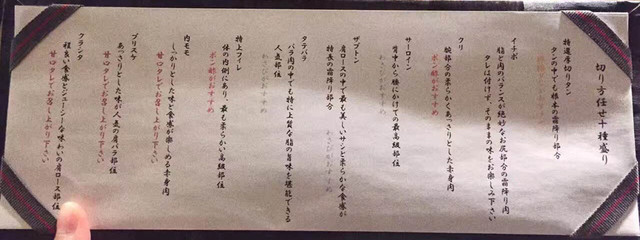 切り方任せ十種盛り
特選厚切りタン
タンの中でも根本の霜降り部分
イチボ
脂と肉のバランスが絶妙なお尻部分の霜降り肉
タレは付けず、そのままの味をお楽しみ下さい
クリ
腕部分の柔らかくあっさりとした赤身肉
ポン酢がおすすめ
サーロイン
背中から腰にかけての最高級部位
わさびがおすすめ
ザブトン
肩ロースの中で最も美しいサシと柔らかな食感が
特長の霜降り部分
わさびがおすすめ
タテバラ
バラ肉の中でも特に上質な脂の旨味を堪能できる
人気部位
わさびがおすすめ
特上フィレ
体の内側にあり、最も柔らかい高級部位
ポン酢がおすすめ
内モモ
しっかりとした味と食感が楽しめる赤身肉
甘口タレでお召し上がり下さい
ブリスケ
あっさりとした味が人気の肩バラ部位
甘口タレでお召し上がり下さい
クラシタ
程良い食感とジューシーな味わいの肩ロース部位
甘口タレでお召し上がり下さい